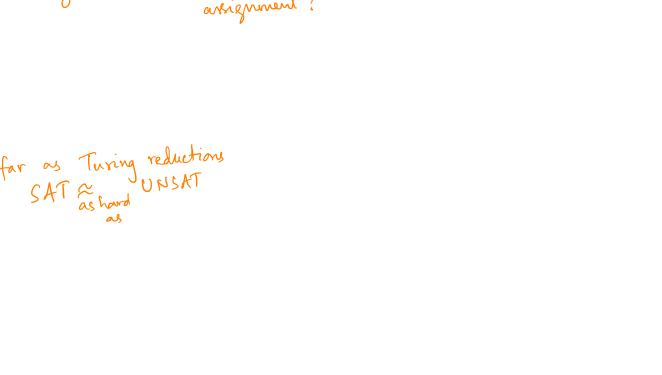 assignment?
far as Turing reductions
SAT ≈ UNSAT
as hard
as